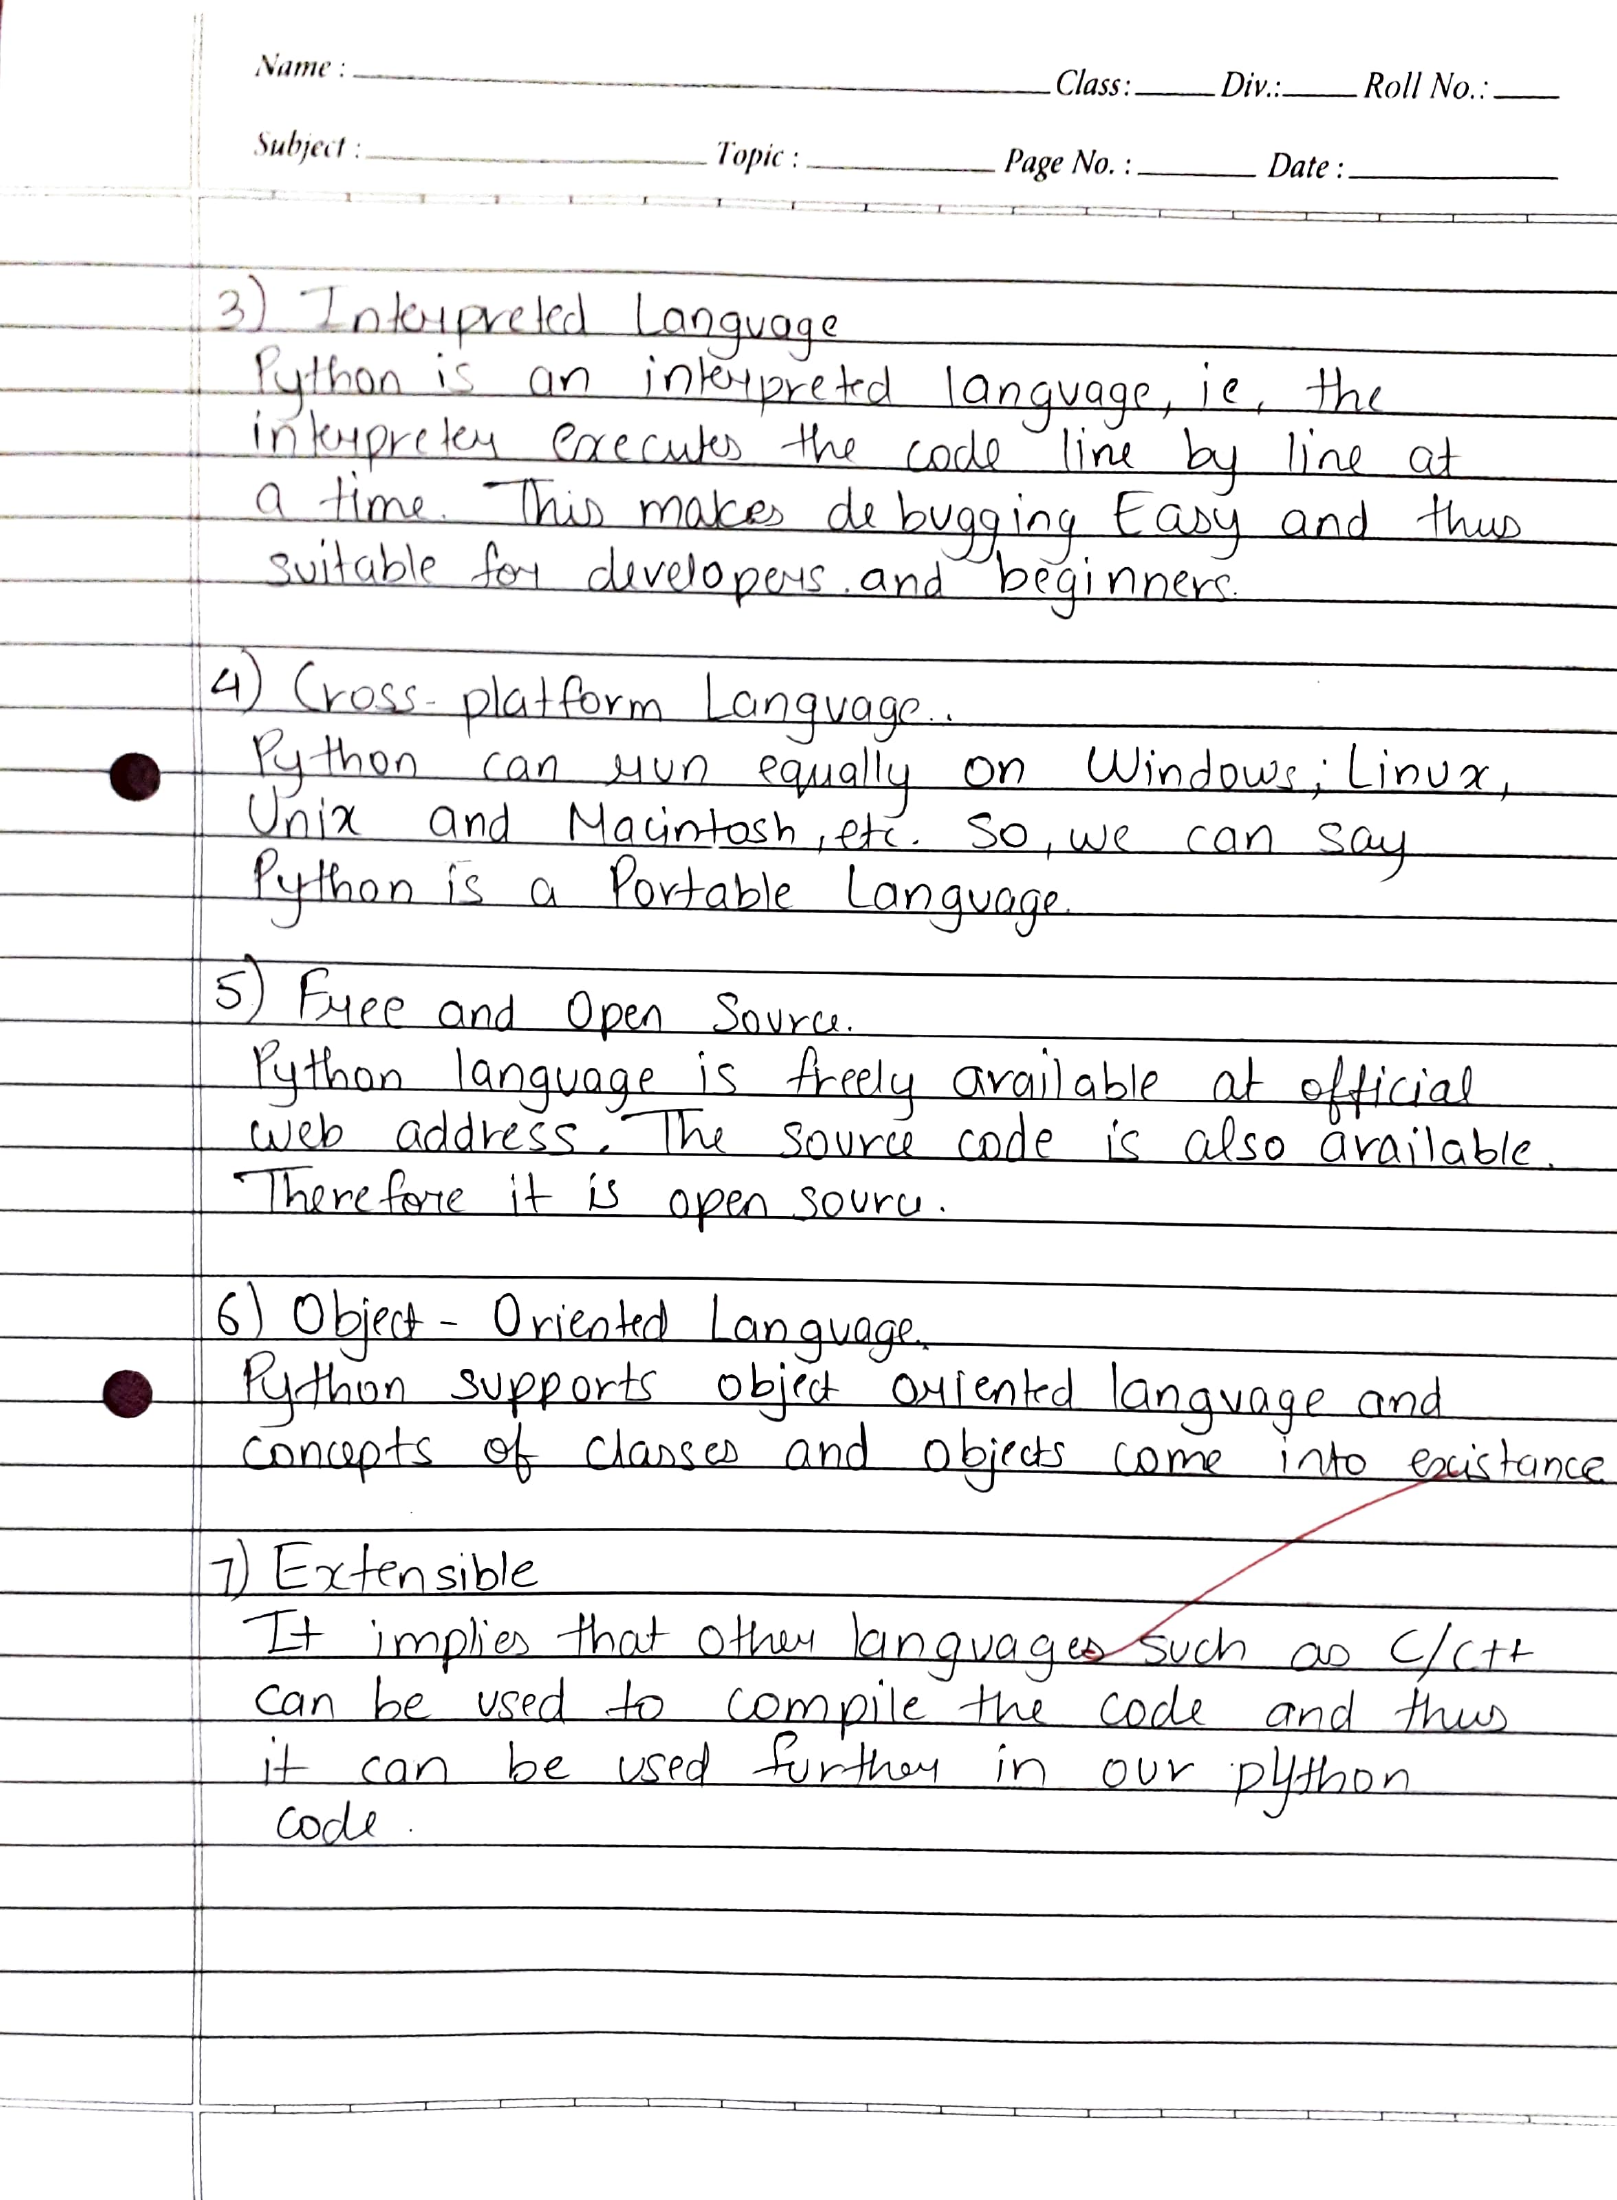 Name : Class: Div.: Roll No.:
Subject : Topic : Page No. : Date :
3) Interpreted Language
Python is an interpreted language, ie, the
interpreter executes the code line by line at
a time. This makes debugging Easy and thus
suitable for developers. and beginners.
4) Cross-platform Language..
Python can run equally on Windows; Linux,
Unix and Macintosh, etc. So, we can say
Python is a Portable Language.
5) Free and Open Source.
Python language is freely available at official
web address. The source code is also available.
Therefore it is open source.
6) Object - Oriented Language.
Python supports object oriented language and
concepts of classes and objects come into existance
7) Extensible
It implies that other languages such as C/C++
can be used to compile the code and thus
it can be used further in our python
code.